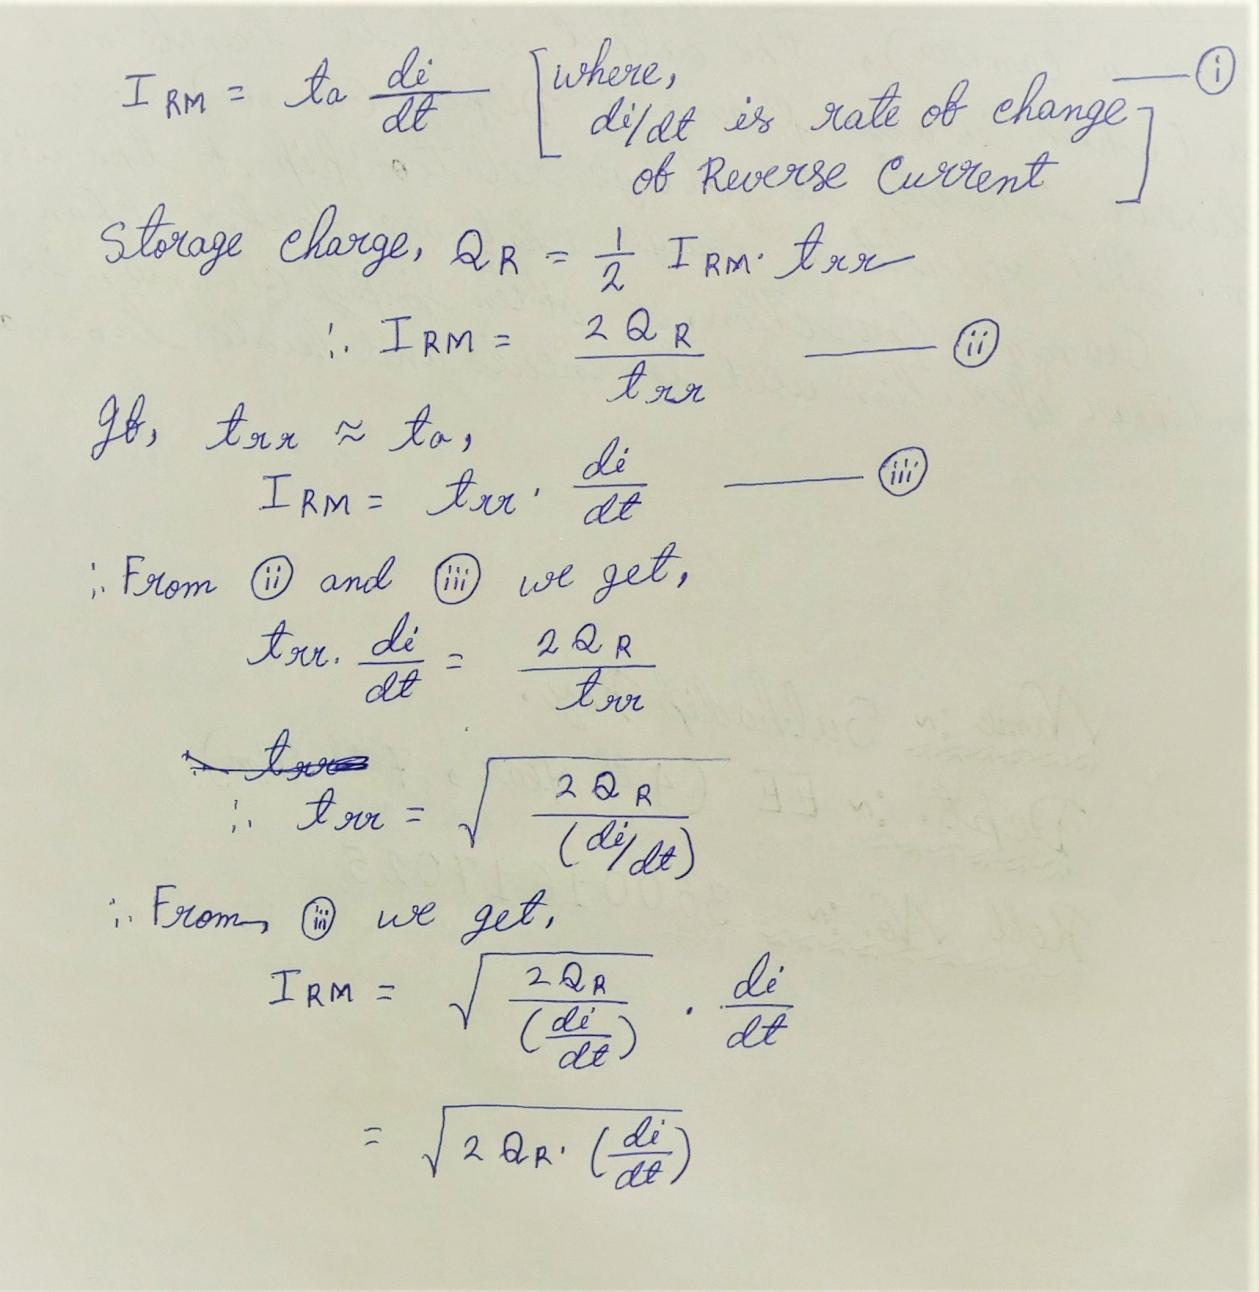 I_RM = ta di/dt [where, —— (i)
di/dt is rate of change
of Reverse Current]
Storage charge, Q_R = 1/2 I_RM. trr
∴ I_RM = 2 Q_R / trr —— (ii)
If, trr ≈ ta,
I_RM = trr . di/dt —— (iii)
∴ From (ii) and (iii) we get,
trr. di/dt = 2 Q_R / trr
∴ trr = √(2 Q_R / (di/dt))
∴ From, (iii) we get,
I_RM = √(2 Q_R / (di/dt)) . di/dt
= √(2 Q_R . (di/dt))